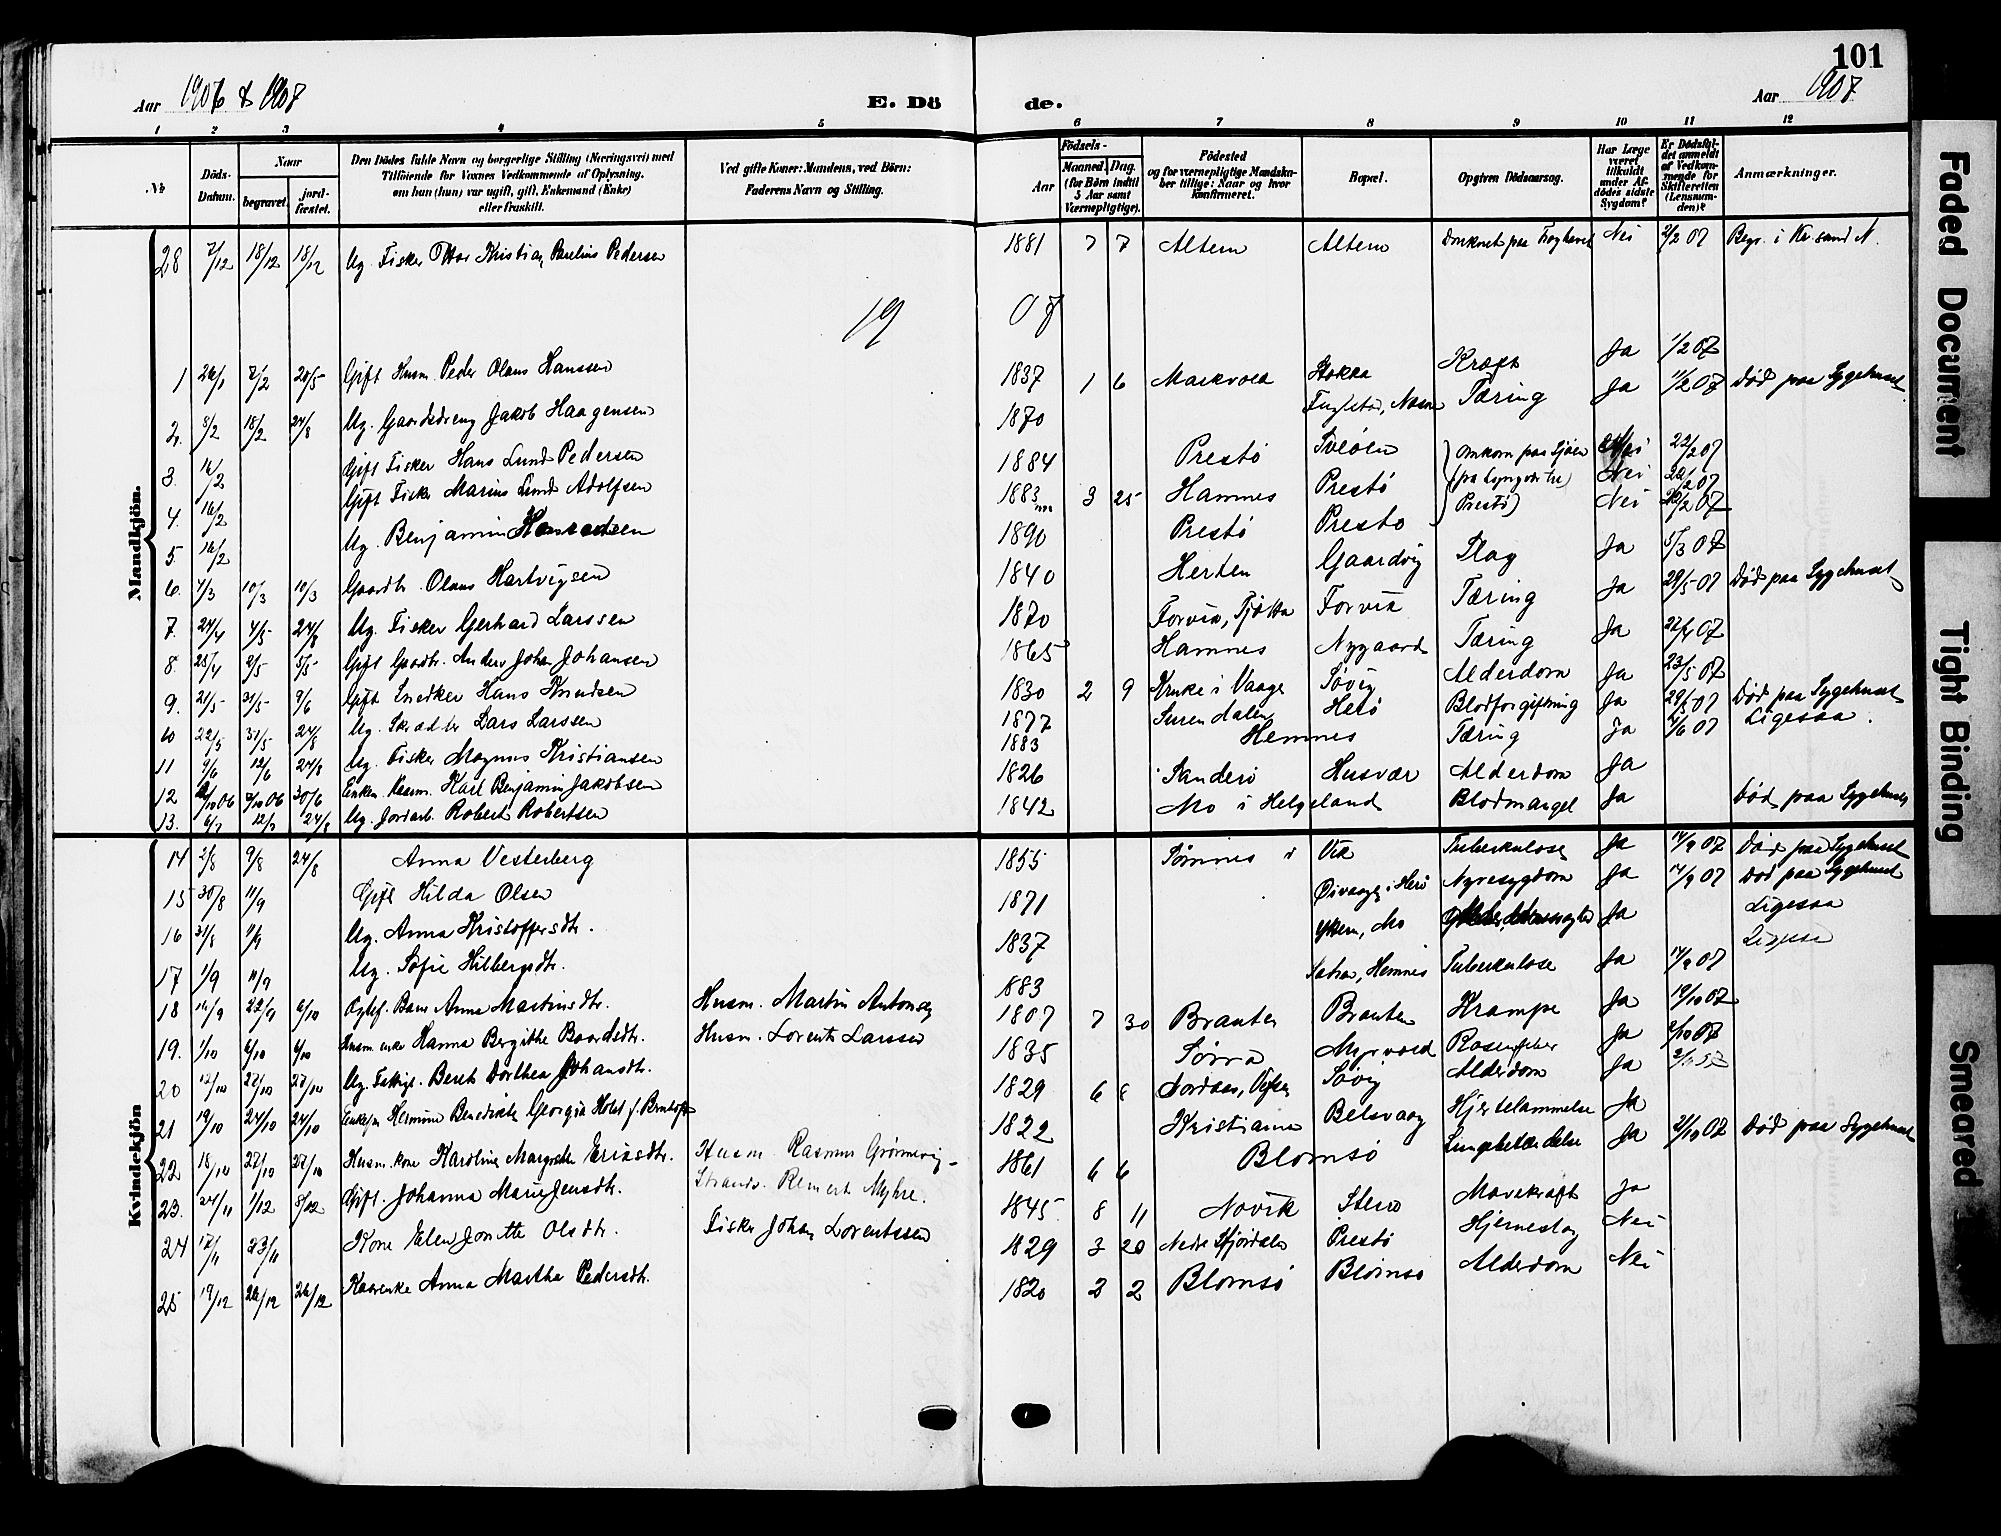 101
Aar 1906 & 1907 E. Dö de. Aar 1907
1 2 3 4 5 6 7 8 9 10 11 12
No Döds-Datum. Naar begravet. jord-fæstet. Den Dödes fulde Navn og borgerlige Stilling (Næringsvei) med Tilföiende for Voxnes Vedkommende af Oplysning, om han (hun) var ugift, gift, Enkemand (Enke) eller fraskilt. Ved gifte Koner: Mandens, ved Börn: Faderens Navn og Stilling. Aar Födsels- Maaned Dag. (for Börn indtil 5 Aar samt Værnepligtige). Födested og for værnepligtige Mandskaber tillige: Naar og hvor konfirmeret. Bopæl. Opgiven Dödsaarsag. Har Læge været tilkaldt under Afdödes sidste Sygdom? Er Dödsfaldet anmeldt af Vedkommende for Skifteretten (Lensmanden)? Anmærkninger.
Mandkjön.
28 7/12 18/12 18/12 Ug. Fisker Kristian Pedersen 1881 7 7 Altern Altern Druknet paa Nei 2/2 07 Begr. i Kr.sand N.
19 07
1 7/2 20/5 Gift Husm. Peder Olaus Hanssen 1837 1 6 Markvold Stokka Kræft Ja 1/2 07
2. 8/2 18/2 24/8 Ug. Gaardsdreng Jakob Haagensen 1870 Tæring Ja 11/2 07 Död paa Sygehuset
3. 16/2 Gift Fisker Hans Lund Pedersen 1884 Prestö Omkom paa Sjöen Nei 22/2 07
4. 16/2 Gift Fisker Marius Lund Adolfsen 1883 3 25 Hamnes Prestö Nei 22/2 07
5 16/2 Ug. Benjamin 1890 Prestö Presto Prestö) Nei 22/2 07
6. 4/3 10/3 10/3 Gaardbr. Olaus Hartvigsen 1840 Herten Gaardvig Slag Ja 5/3 07
7. 24/4 4/5 24/8 Ug. Fisker Gerhard Larssen 1870 Forvik, Tjötta Forvik Tæring Ja 29/5 07 Död paa Sygehuset
8. 25/4 2/5 5/5 Gift Gaardbr. Anders Johan Johansen 1865 Hamnes Nygaard Tæring Ja 07
9. 21/5 31/5 9/6 Gift Snedker Hans Knudsen 1830 2 9 Kruke i Vaage Sövig Alderdom Ja 23/5 07
10 22/5 31/5 24/8 Ug. Lars Larssen 1877 Surendalen Herö Blodforgiftning Ja 29/5 07 Död paa Sygehuset
11 9/6 12/6 24/8 Ug. Fisker Magnus Kristiansen 1883 Hemnes Tæring Ja 4/6 07 Ligesaa.
12 10 06 7/10 06 30/6 Enkem. Karl Benjamin Jakobsen 1826 Sanderö Husvær Alderdom Ja
13. 6/7 12/7 24/8 Ug. Jordarb. Robert Robertsen 1842 Mo i Helgeland Blodmangel Ja Död paa Sygehuset
Kvindekjön
14 2/8 9/8 24/8 Anna Vesterberg 1855 Sömnes i Vik Tuberkulose Ja 14/9 07 Död paa Sygehuset
15 30/8 11/9 Gift Hilda Olsen 1871 Öivaage i Herö Nyresygdom Ja 14/9 07 Död paa Sygehuset
16 31/8 11/9 Ug. Anna Kristoffersdtr. 1837 Mo Ja Ligesaa
17 1/9 11/9 Ug. Sofie Hilbergsdtr. 1883 Hemnes Tuberkulose Ja 14/9 07 Ligesaa
18 14/9 22/9 6/10 Barn Anna Martinsdtr. Husm. Martin Antonsen 1807 7 30 Brauten Brauten Krampe Ja 19/10 07
19. 1/10 6/10 6/10 Husm. enke Hanna Bergithe Baardsdtr. Husm. Lorents Larssen 1835 Sörra Myrvold Rosenfeber Ja 07
20 12/10 27/10 27/10 Ug. Beret Dorthea Johansdtr. 1829 6 8 Sövig Alderdom Ja
21 19/10 24/10 24/10 Hermine Benedikte Georgia Holst f. 1822 Kristiania Belsvaag Hjertelammelse Ja
22 18/10 27/10 27/10 Husm. kone Karoline Margrethe Eriksdtr. Husm. Rasmus Grönnevig 1861 6 6 Blomsö Lungebetændelse Ja 2/10 07 Död paa Sygehuset
23. 24/11 1/12 8/12 Gift. Johanna Marie Jensdtr. Strands. Remert Myhre. 1845 8 11 Novik Stenö Mavekræft Ja
24 17/11 23/11 Kone Elen Jonette Olsdtr. Fisker Johan Lorentssen 1829 3 20 Nedre Stjördalen Prestö Hjerneslag Nei
25 19/12 26/12 26/12 Kaarenke Anna Martha Pedersdtr. 1820 2 2 Blomsö Blomsö Alderdom Nei
Faded Document
Tight Binding
Smeared